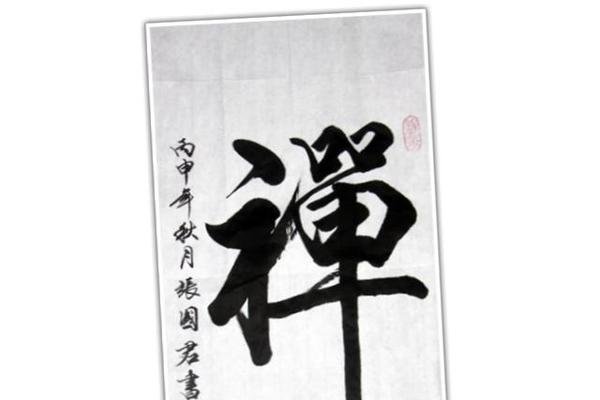 禪
丙申年秋月張國君書